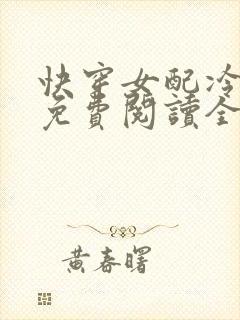 快穿女配冷
免費閱讀全
黃春曙